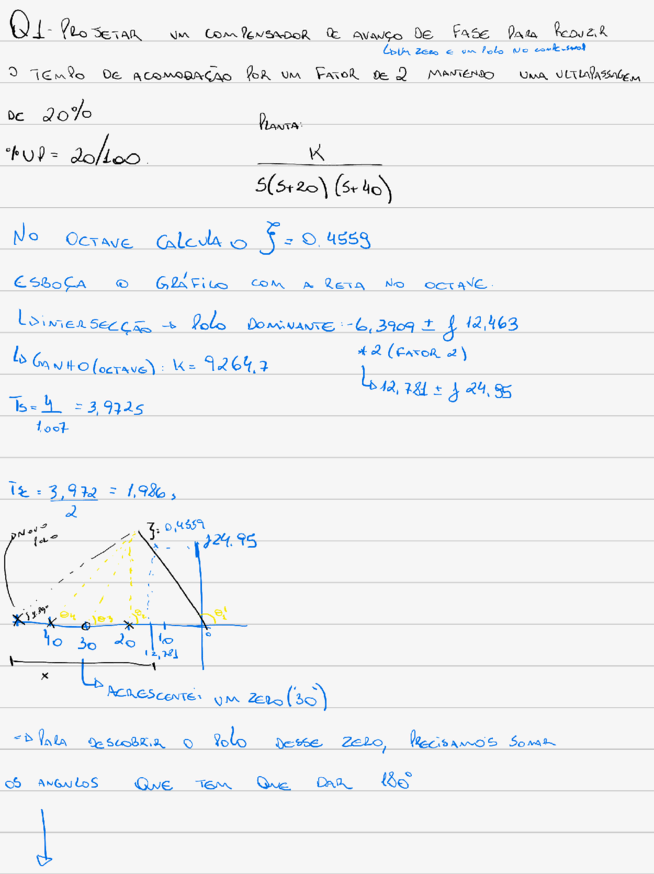 Q1- PROJETAR UM COMPENSADOR DE AVANÇO DE FASE PARA REDUZIR
↳ UM ZERO E UM POLO NO
O TEMPO DE ACOMODAÇÃO POR UM FATOR DE 2 MANTENDO UMA ULTRAPASSAGEM
DE 20%
PLANTA:
%UP = 20/100.
K
S(S+20) (S+40)
NO OCTAVE CALCULA O ξ = 0.4559
ESBOÇA O GRÁFICO COM A RETA NO OCTAVE.
↳ INTERSECÇÃO → POLO DOMINANTE: -6,3909 ± j 12,463
↳ GANHO (OCTAVE): K = 9264,7
* 2 (FATOR 2)
↳ 12,781 ± j 24,95
Ts = 4 = 3,972s
1.007
Ts = 3,972 = 1,986s
2
NOVO
POLO
ξ: 0,4559
j24.95
θ4 θ3 θ2 θ1
40 30 20 10 0
12,781
x
↳ ACRESCENTEI UM ZERO ('30')
⇒ PARA DESCOBRIR O POLO DESSE ZERO, PRECISAMOS SOMAR
OS ANGULOS QUE TEM QUE DAR 180°